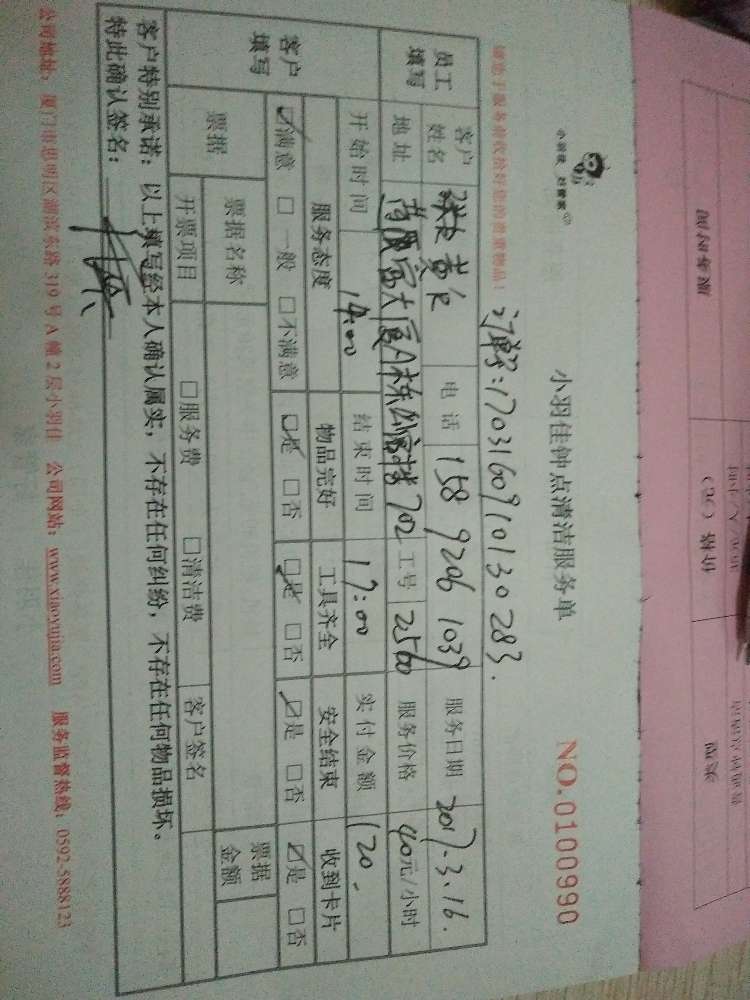 小羽佳 好管家
小羽佳钟点清洁服务单
NO.0100990
请您于服务前收拾好您的贵重物品!
订单号:1703160910130283.
员工填写
客户姓名
电话 158 9206 1039
服务日期 2017.3.16.
地址
大厦A栋
702
工号 2560
服务价格 40元/小时
客户填写
开始时间 14:00
结束时间 17:00
实付金额 120.
服务态度
物品完好
工具齐全
安全结束
收到卡片
☑满意 □一般 □不满意
☑是 □否
☑是 □否
☑是 □否
☑是 □否
票据
票据名称
票据金额
开票项目
□服务费 □清洁费
客户签名
客户特别承诺:以上填写经本人确认属实,不存在任何纠纷,不存在任何物品损坏。
特此确认签名:
公司地址:厦门市思明区湖滨东路319号A幢2层小羽佳 公司网站:www.xiaoyujia.com 服务监督热线:0592-5888123